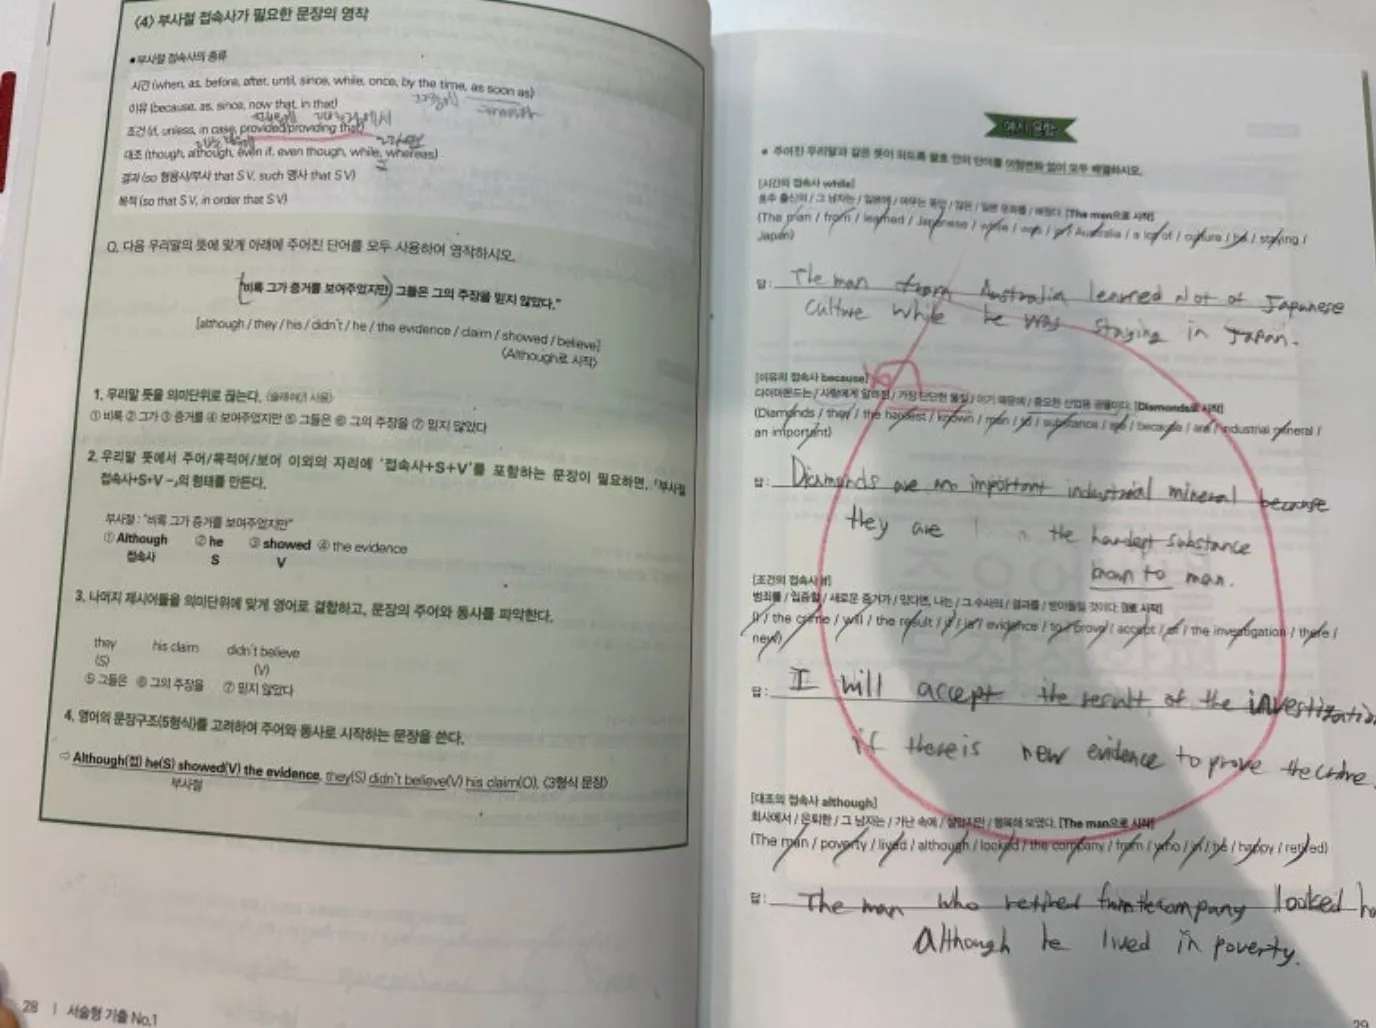 〈4〉 부사절 접속사가 필요한 문장의 영작
▪부사절 접속사의 종류
시간 (when, as, before, after, until, since, while, once, by the time, as soon as)
이유 (because, as, since, now that, in that)
조건 (if, unless, in case, provided/providing that)
대조 (though, although, even if, even though, while, whereas)
결과 (so 형용사/부사 that S V, such 명사 that S V)
목적 (so that S V, in order that S V)
Q. 다음 우리말의 뜻에 맞게 아래에 주어진 단어를 모두 사용하여 영작하시오.
"비록 그가 증거를 보여주었지만 그들은 그의 주장을 믿지 않았다."
[although / they / his / didn't / he / the evidence / claim / showed / believe]
(Although로 시작)
1. 우리말 뜻을 의미단위로 끊는다. (슬래쉬(/) 사용)
① 비록 ② 그가 ③ 증거를 ④ 보여주었지만 ⑤ 그들은 ⑥ 그의 주장을 ⑦ 믿지 않았다
2. 우리말 뜻에서 주어/목적어/보어 이외의 자리에 '접속사+S+V'를 포함하는 문장이 필요하면, 「부사절
접속사+S+V ~」의 형태를 만든다.
부사절 : "비록 그가 증거를 보여주었지만"
① Although ② he ③ showed ④ the evidence
접속사 S V
3. 나머지 제시어들을 의미단위에 맞게 영어로 결합하고, 문장의 주어와 동사를 파악한다.
they his claim didn't believe
(S) (V)
⑤ 그들은 ⑥ 그의 주장을 ⑦ 믿지 않았다
4. 영어의 문장구조(5형식)를 고려하여 주어와 동사로 시작하는 문장을 쓴다.
⇨ Although(접) he(S) showed(V) the evidence, they(S) didn't believe(V) his claim(O). (3형식 문장)
부사절
28 | 서술형 기출 No.1
예시 문항
▪ 주어진 우리말과 같은 뜻이 되도록 괄호 안의 단어를 어형변화 없이 모두 배열하시오.
[시간의 접속사 while]
호주 출신의 / 그 남자는 / 일본에 / 머무는 동안 / 많은 / 일본 문화를 / 배웠다. [The man으로 시작]
(The man / from / learned / Japanese / while / was / in / Australia / a lot of / culture / he / staying /
Japan)
답: The man from Australia learned alot of Japanese
culture while he was staying in Japan.
[이유의 접속사 because]
다이아몬드는 / 사람에게 알려진 / 가장 단단한 물질 / 이기 때문에 / 중요한 산업용 광물이다. [Diamonds로 시작]
(Diamonds / they / the hardest / known / man / to / substance / are / because / are / industrial mineral /
an important)
답: Diamonds are an important industrial mineral because
they are the hardest substance
known to man.
[조건의 접속사 if]
범죄를 / 입증할 / 새로운 증거가 / 있다면, 나는 / 그 수사의 / 결과를 / 받아들일 것이다. [I로 시작]
(I / the crime / will / the result / if / is / evidence / to / prove / accept / of / the investigation / there /
new)
답: I will accept the result of the investigation
if there is new evidence to prove the crime.
[대조의 접속사 although]
회사에서 / 은퇴한 / 그 남자는 / 가난 속에 / 살았지만 / 행복해 보였다. [The man으로 시작]
(The man / poverty / lived / although / looked / the company / from / who / in / he / happy / retired)
답: The man who retired from the company looked ha
although he lived in poverty.
29